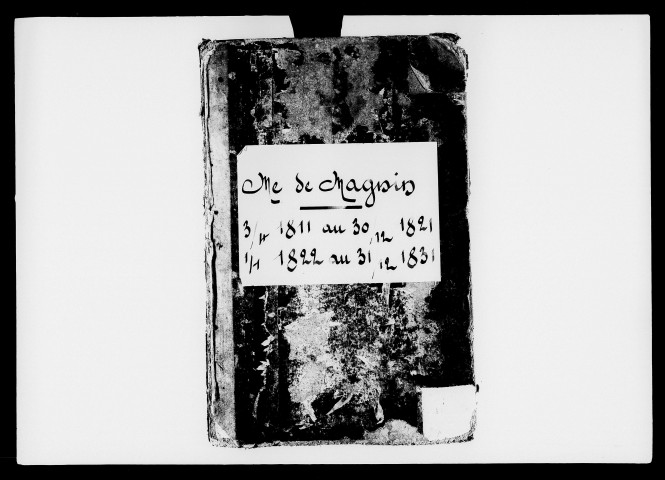 Me de Magnin
3/4 1811 au 30/12 1821
1/1 1822 au 31/12 1831